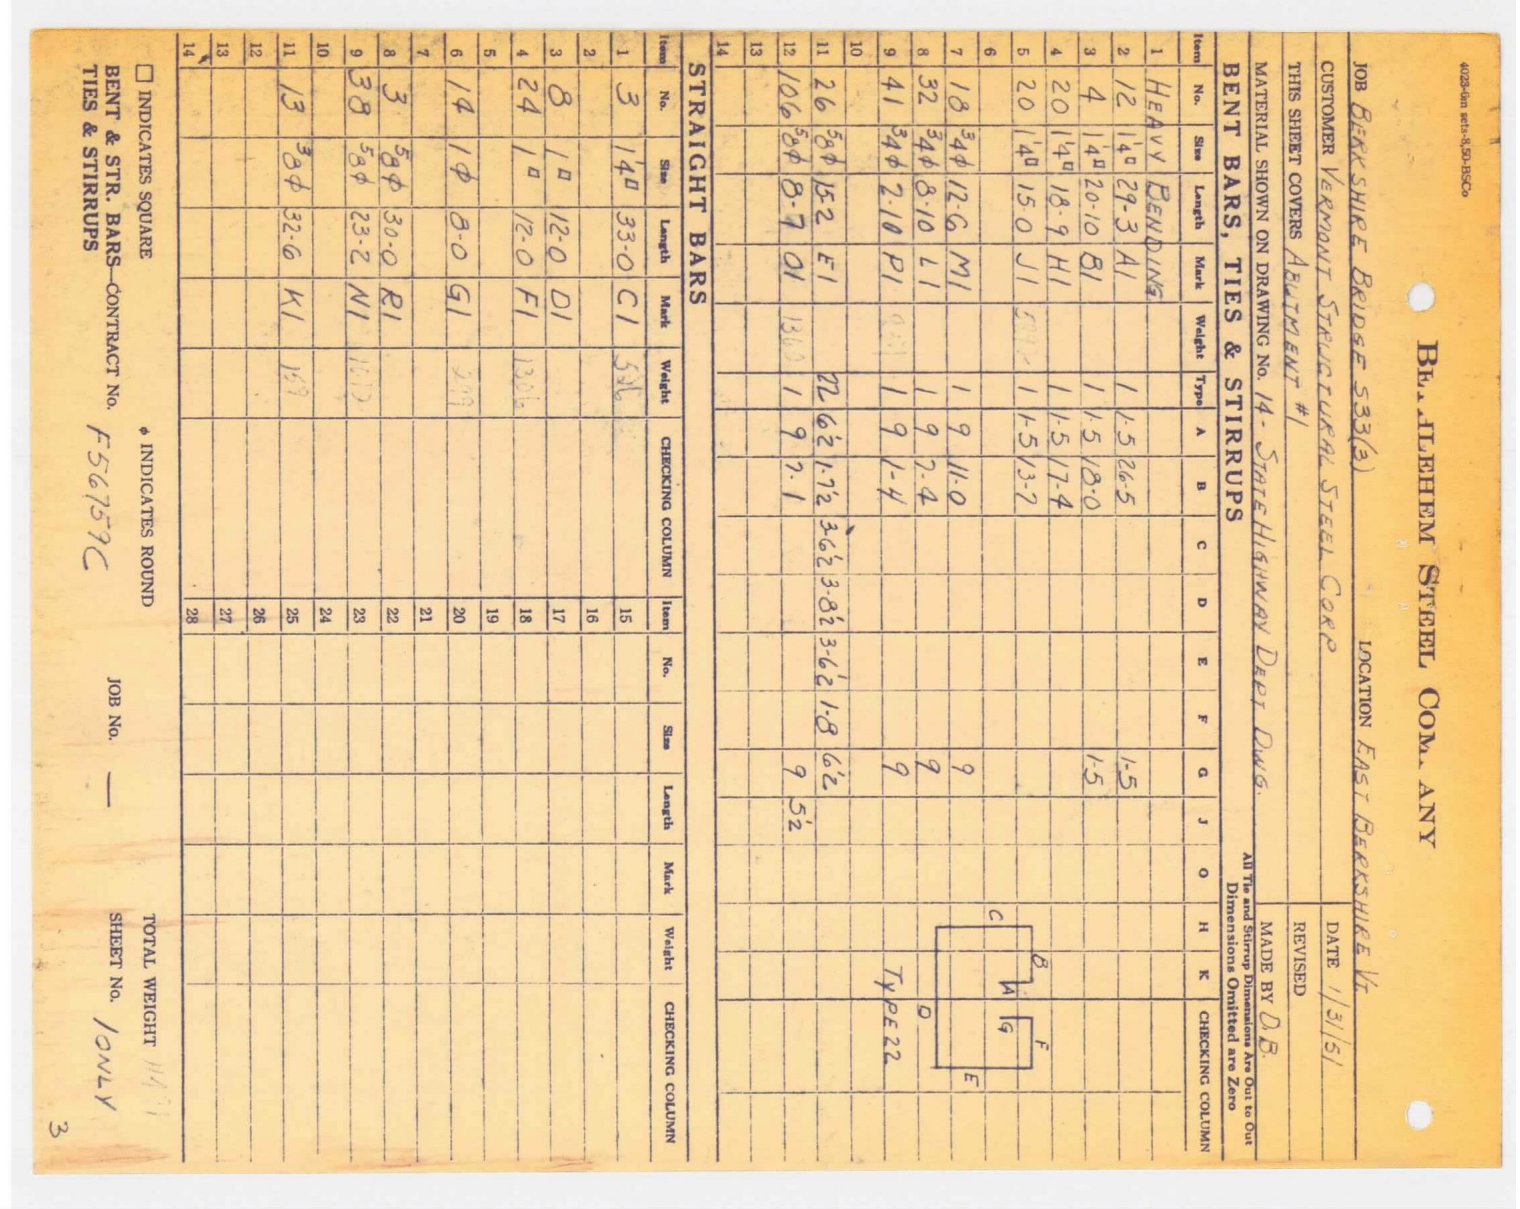 4028-6m sets-8,50-BSCo
BETHLEHEM STEEL COMPANY
JOB BERKSHIRE BRIDGE S33(3) LOCATION EAST BERKSHIRE VT.
CUSTOMER VERMONT STRUCTURAL STEEL CORP DATE 1/31/51
THIS SHEET COVERS ABUTMENT #1 REVISED
MATERIAL SHOWN ON DRAWING No. 14 - STATE HIGHWAY DEPT DWG. MADE BY D.B.
BENT BARS, TIES & STIRRUPS All Tie and Stirrup Dimensions Are Out to Out
Dimensions Omitted are Zero
Item No. Size Length Mark Weight Type A B C D E F G J O H K CHECKING COLUMN
1 HEAVY BENDING
2 12 1'4□ 29-3 A1 1 1-5 26-5 1-5
3 4 1'4□ 20-10 B1 1 1-5 18-0 1-5
4 20 1'4□ 18-9 H1 1 1-5 17-4
5 20 1'4□ 15-0 J1 1 1-5 13-7
6
7 18 3/4ϕ 12-6 M1 1 9 11-0 9
8 32 3/4ϕ 8-10 L1 1 9 7-4 9
9 41 3/4ϕ 2-10 P1 1 9 1-4 9
10
11 26 5/8ϕ 15-2 E1 22 6½ 1-7½ 3-6½ 3-8½ 3-6½ 1-8 6½
12 106 5/8ϕ 8-7 O1 1 9 7-1 9 5½
13
14
C B A G F D E
TYPE 22
STRAIGHT BARS
Item No. Size Length Mark Weight CHECKING COLUMN Item No. Size Length Mark Weight CHECKING COLUMN
1 3 1'4□ 33-0 C1 526 15
2 16
3 8 1□ 12-0 D1 17
4 24 1□ 12-0 F1 1306 18
5 19
6 14 1ϕ 8-0 G1 20
7 21
8 3 5/8ϕ 30-0 R1 22
9 38 5/8ϕ 23-2 N1 23
10 24
11 13 3/8ϕ 32-6 K1 159 25
12 26
13 27
14 28
□ INDICATES SQUARE ϕ INDICATES ROUND TOTAL WEIGHT
BENT & STR. BARS—CONTRACT No. F56759C JOB No. — SHEET No. 1 ONLY
TIES & STIRRUPS
3